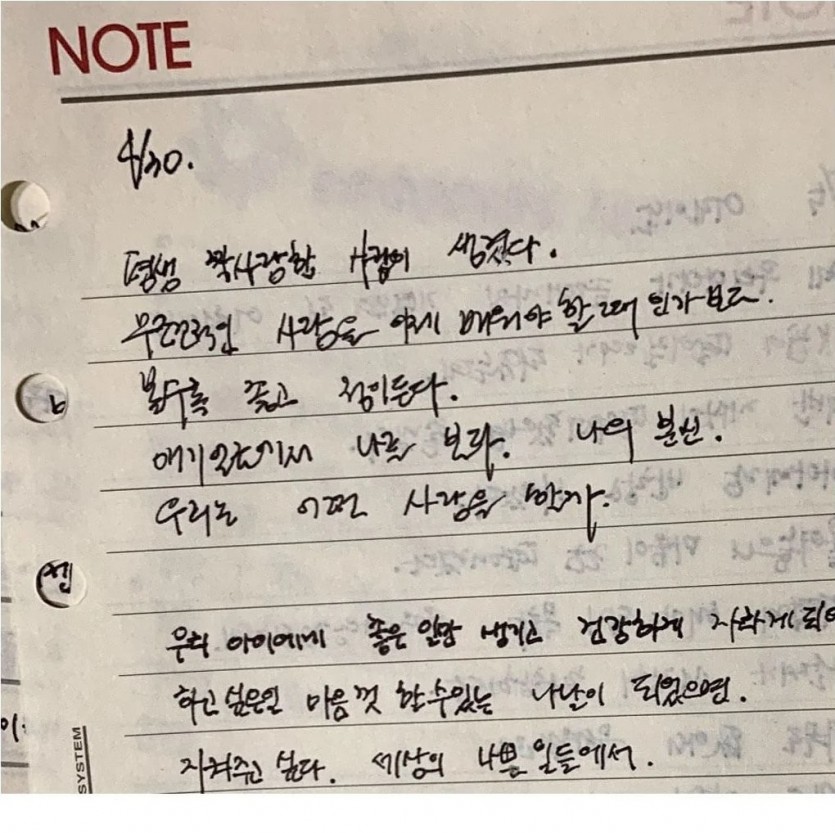 NOTE
4/30.
평생 짝사랑할 사람이 생겼다.
무조건적인 사랑을 이제 배워야 할 때 인가보다.
볼수록 좋고 정이든다.
애기 얼굴에서 나를 보다. 나의 분신.
우리는 어떤 사랑을 할까.
우리 아이에게 좋은 일만 생기고 건강하게 자라게 되어
하고 싶은일 마음껏 할 수 있는 나날이 되었으면.
지켜주고 싶다. 세상의 나쁜 일들에서.
SYSTEM